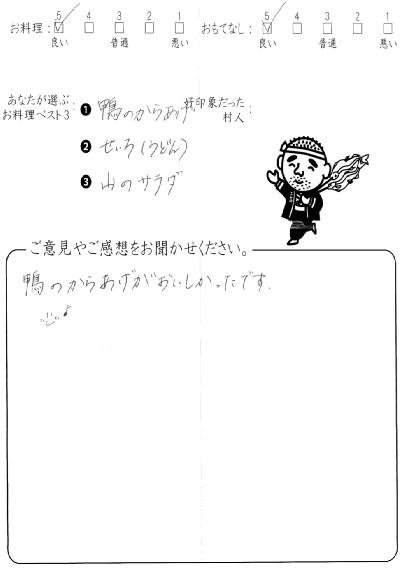 5 4 3 2 1 5 4 3 2 1
お料理: ☑ □ □ □ □ おもてなし: ☑ □ □ □ □
良い 普通 悪い 良い 普通 悪い
あなたが選ぶ
お料理ベスト3:
❶ 鴨のからあげ
❷ せいろ(うどん)
❸ 山のサラダ
好印象だった
村人:
ご意見やご感想をお聞かせください。
鴨のからあげがおいしかったです.